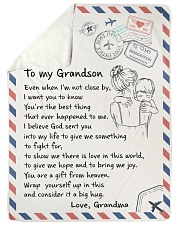 To my Grandson
Even when I'm not close by,
I want you to know
You're the best thing
that ever happened to me.
I believe God sent you
into my life to give me something
to fight for,
to show me there is love in this world,
to give me hope and to bring me joy.
You are a gift from heaven.
Wrap yourself up in this
and consider it a big hug.
Love, Grandma